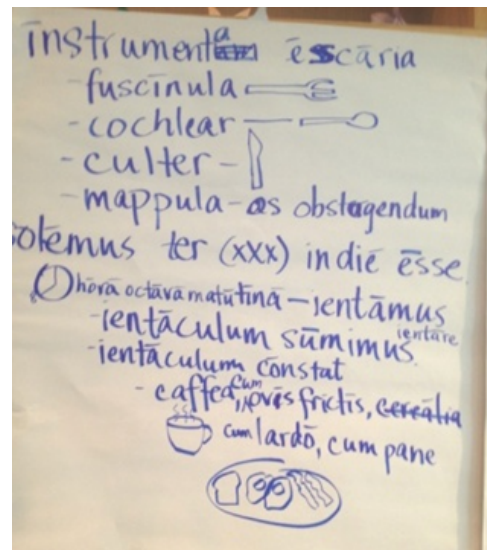 īnstrumenta ēscāria
- fuscīnula
- cochlear
- culter -
- mappula - os obstegendum
solēmus ter (xxx) in diē ēsse.
hōrā octāvā mātūtīnā - ientāmus
ientāre
- ientāculum sūmimus.
- ientāculum constat
- caffeā, cum ōvīs frictīs, cereālia
cum lardō, cum pane